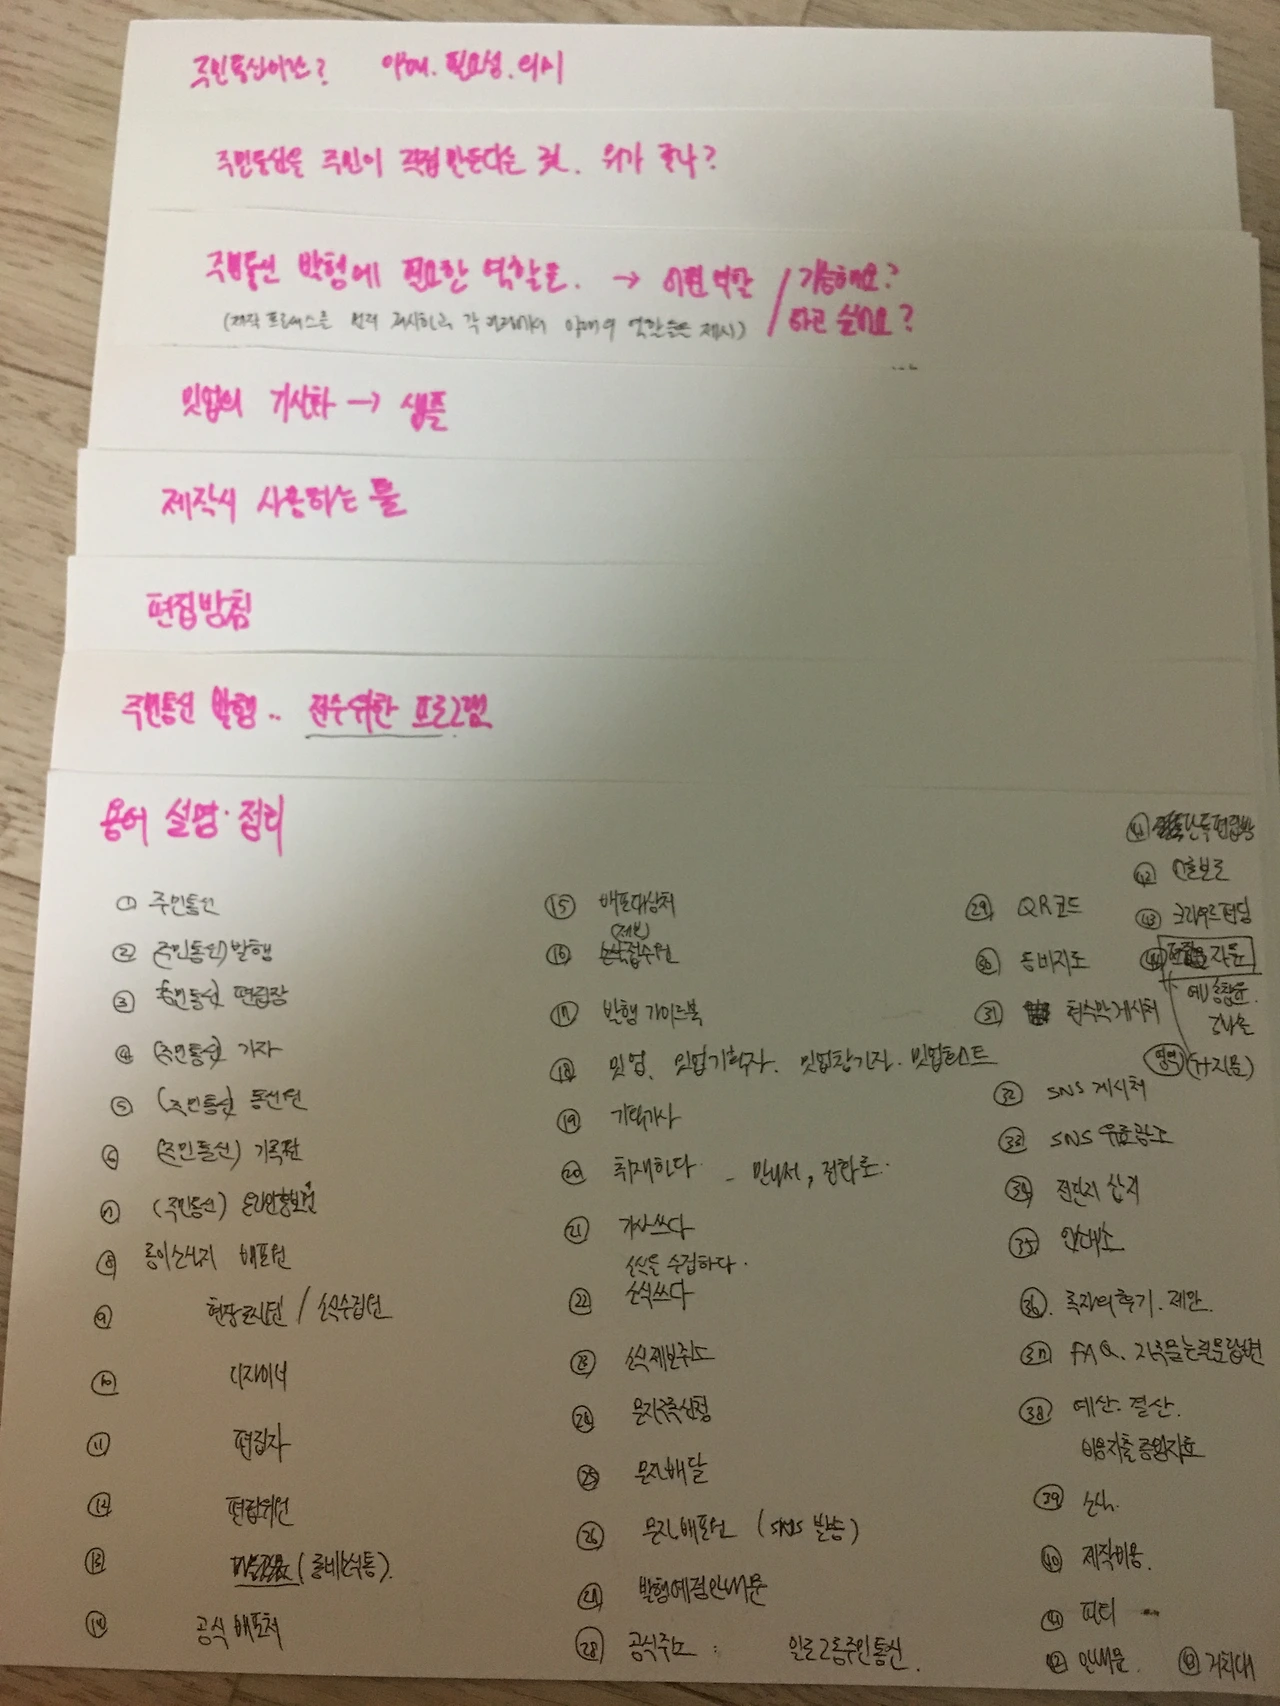 주민통신이란? 이해. 필요성. 의미
주민통신을 주민이 직접 만든다는 것. 뭐가 좋나?
주민통신 발행에 필요한 역할들. → 어떤 역할 / 가능해요?
하고 싶어요?
(제작 프로세스를 먼저 제시하고 각 역할들은 제시)
...
밋업의 기사화 → 샘플
제작시 사용하는 툴
편집방침
주민통신 발행.. 전수위한 프로그램
용어 설명·정리
① 주민통신
② (주민통신) 발행
③ (주민통신) 편집장
④ (주민통신) 기자
⑤ (주민통신) 통신원
⑥ (주민통신) 기록관
⑦ (주민통신) 온라인홍보원
⑧ 종이소식지 배포원
⑨ 현장 / 소식수집원
⑩ 디자이너
⑪ 편집자
⑫ 편집위원
⑬
⑭ 공식배포처
⑮ 배포대상처
⑯ (제보) 접수원
⑰ 발행 가이드북
⑱ 밋업, 밋업기획자. 밋업참가자. 밋업호스트
⑲ 기획기사
⑳ 취재하다 - 만나서, 전화로.
㉑ 기사쓰다
소식을 수집하다.
㉒ 소식쓰다
㉓ 소식제보주소
㉔ 문자구독신청
㉕ 문자배달
㉖ 문자배포원 (SNS 발송)
㉗ 발행예정안내문
㉘ 공식주소 : 주민통신.
㉙ QR코드
㉚ 동비지도
㉛ 현수막게시처
㉜ SNS 게시처
㉝ SNS 유료광고
㉞ 전단지 삽지
㉟ 안내소
㊱. 독자의 후기. 제안.
㊲ FAQ. 자주묻는질문답변
㊳ 예산. 결산.
비용지출증빙자료
㊴
㊵ 제작비용.
㊶ 파티
㊷ 안내문. ㊸ 거치대
㊶ 단톡편집방
㊷
㊸ 크라우드펀딩
㊹ 자문